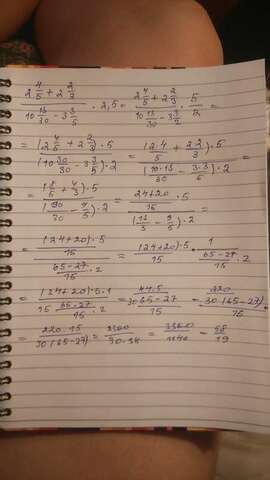 (2 4/5 + 2 2/3)/(10 13/30 - 3 3/5) · 2,5 = (2 4/5 + 2 2/3)/(10 13/30 - 3 3/5) · 5/2 =
= ((2 4/5 + 2 2/3) · 5)/((10 30/30 - 3 3/5) · 2) = ((2·4/5 + 2 2/3) · 5)/((10·13/30 - 3·3/5) · 2) =
= ((8/5 + 4/3) · 5)/((/30 - 9/5) · 2) = ((24+20)/15 · 5)/((13/3 - 9/5) · 2) =
= ((24+20) · 5/15)/((65-27)/15 · 2) = (24+20) · 5/15 · 1/((65-27)/15 · 2)
= ((24+20) · 5 · 1)/(15 (65-27)/15 · 2) = 44·5/(30(65-27)/15) = 220/(30·(65-27)/15)
= 220·15/(30·(65-27)) = 3300/(30·38) = 3300/1140 = /19